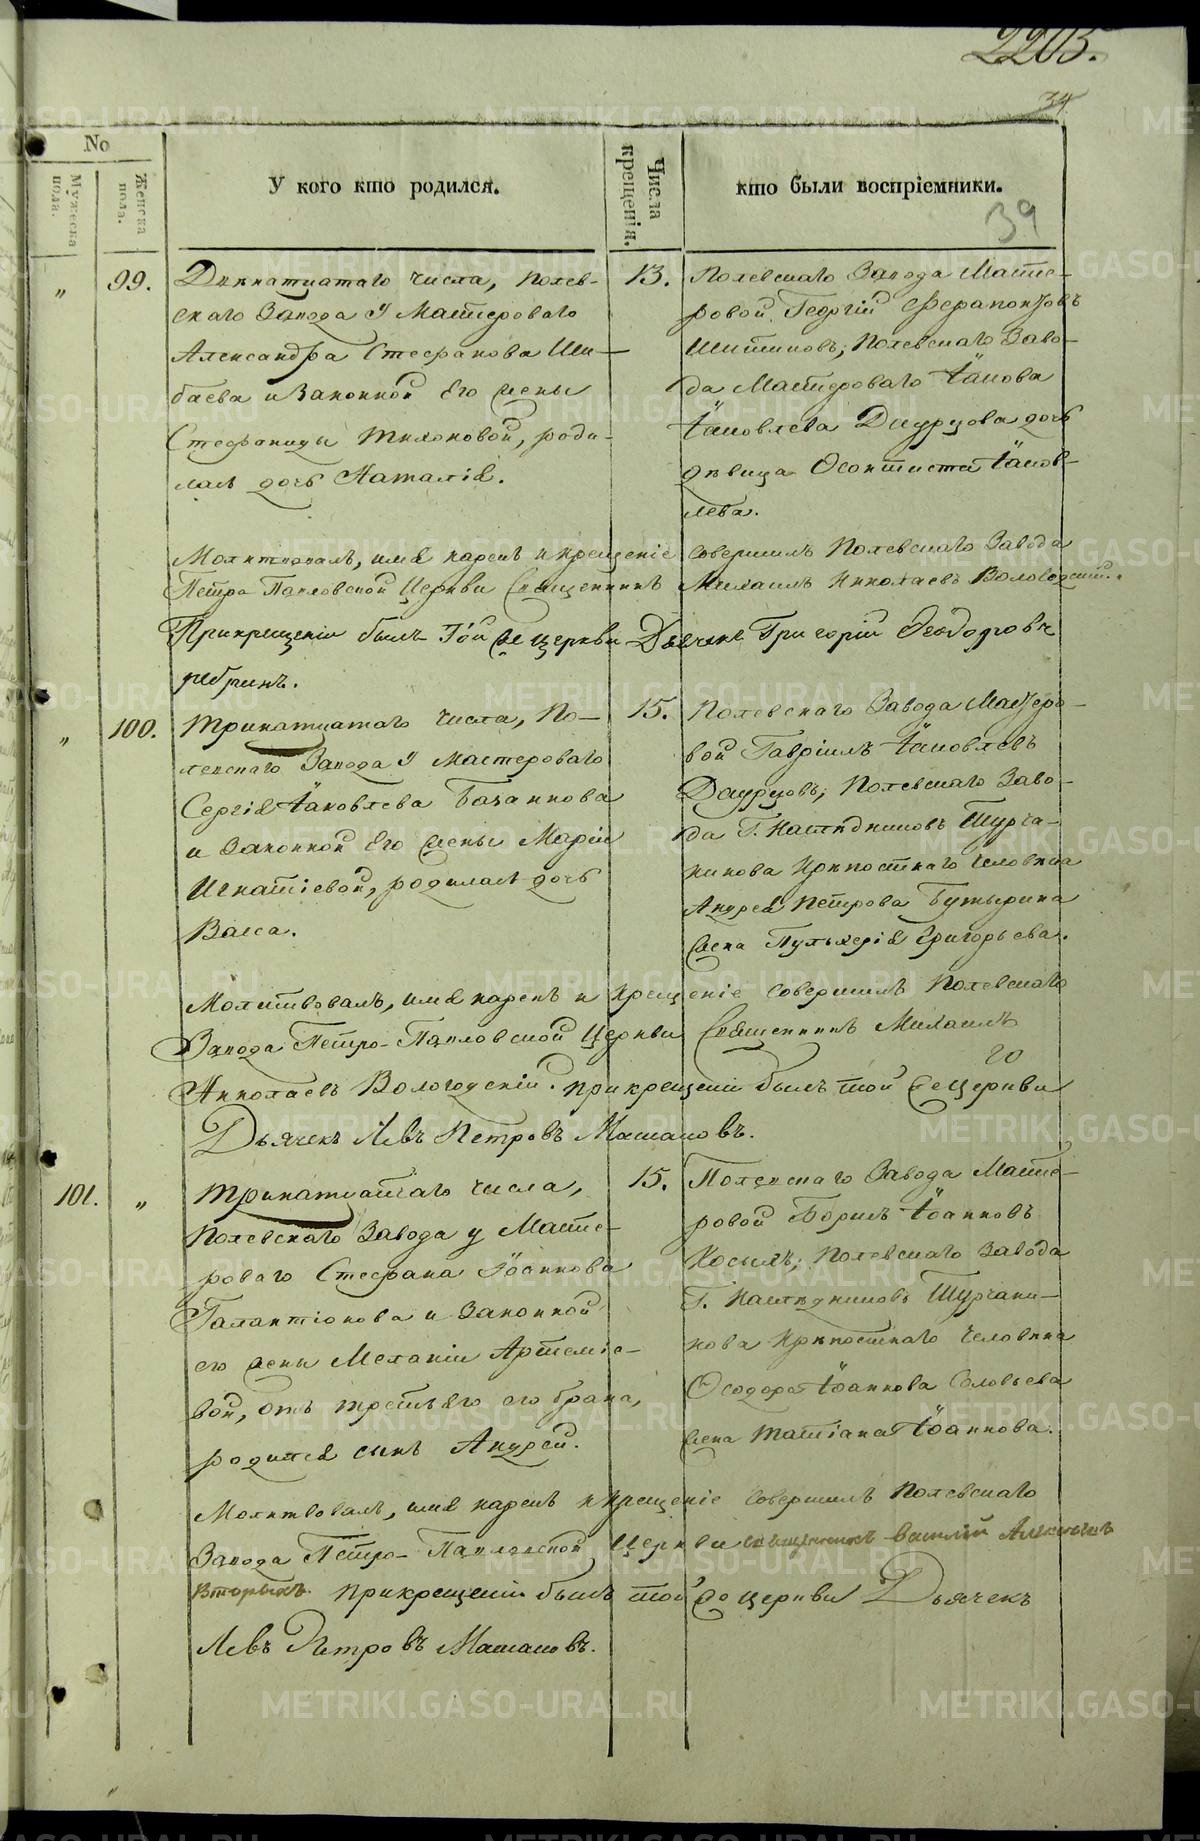 2203.
34
No
Мужеска пола.
Женска пола.
У кого кто родился.
Числа крещенія.
кто были воспріемники.
39
„ 99. Двенатцатаго числа, Полев-
скаго Завода у Мастероваго
Александра Стефанова Ши-
баева и Законной Его жены
Стефаниды Тихоновой, роди-
лась дочь Наталія.
13. Полевскаго Завода Масте-
ровой Георгій Ферапонтовъ
Шитиковъ; Полевскаго Заво-
да Мастероваго Іакова
Іаковлева Даурцова дочь
девица Феоктиста Іаков-
лева.
Молитвовалъ, имя нарекъ и крещеніе совершилъ Полевскаго Завода
Петро-Павловской Церкви Священникъ Михаилъ Николаевъ Вологодскій.
При крещеніи былъ той же церкви Дьячекъ Григорій Феодоровъ
ребринъ.
„ 100. Тринатцатаго числа, По-
левскаго Завода у Мастероваго
Сергія Іаковлева Бажанова
и Законной Его жены Маріи
Игнатіевой, родилась дочь
Васса.
15. Полевскаго Завода Мастеро-
вой Гавріилъ Іаковлевъ
Даурцовъ; Полевскаго Заво-
да Г. Наследниковъ Турча-
нинова Крепостнаго человека
Андрея Петрова Бутырина
жена Пульхерія Григорьева.
Молитвовалъ, имя нарекъ и крещеніе совершилъ Полевскаго
Завода Петро-Павловской Церкви Священникъ Михаилъ
Николаевъ Вологодскій. При крещеніи былъ той же церкви
Дьячекъ Левъ Петровъ Машановъ.
101. „ Тринатцатаго числа,
Полевскаго Завода у Масте-
роваго Стефана Іоаннова
Галактіонова и Законной
его жены Меланіи Артеміе-
вой, отъ третьяго его брака,
родился сынъ Андрей.
15. Полевскаго Завода Масте-
ровой Борисъ Іоанновъ
Косыхъ; Полевскаго Завода
Г. Наследниковъ Турчани-
нова Крепостнаго человека
Феодора Іоаннова Соловьева
жена Татіана Іоаннова.
Молитвовалъ, имя нарекъ и крещеніе совершилъ Полевскаго
Завода Петро-Павловской Церкви священникъ Василій Алексеевъ
Вторыхъ. При крещеніи былъ той же церкви Дьячекъ
Левъ Петровъ Машановъ.
METRIKI.GASO-URAL.RU